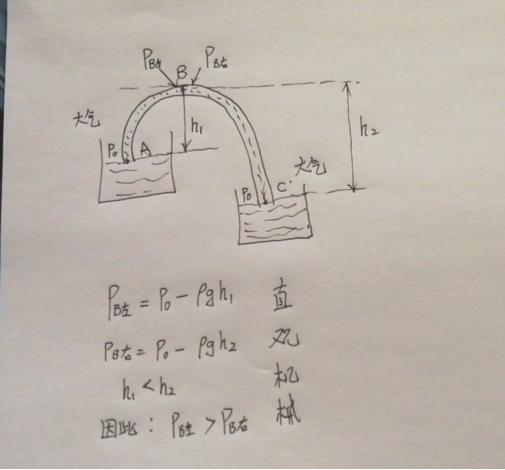 P_B左 P_B右
B
大气 h₁ h₂
P₀ A 大气
P₀ C
P_B左 = P₀ - ρgh₁ 直
P_B右 = P₀ - ρgh₂ 观
h₁ < h₂ 机
因此： P_B左 > P_B右 械